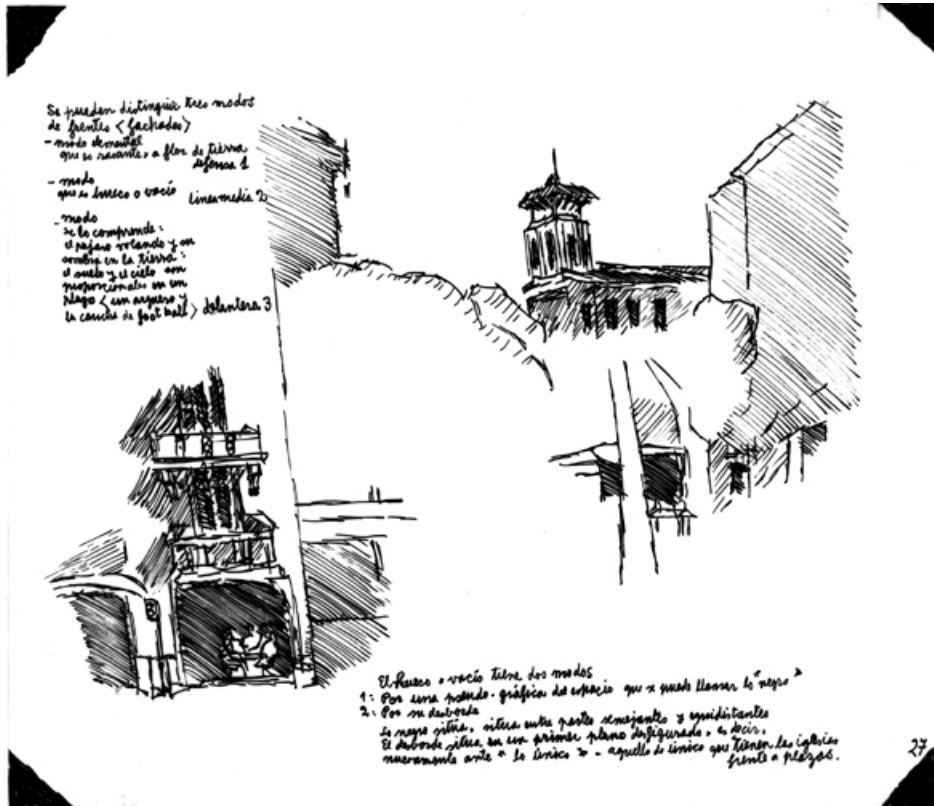 Se pueden distinguir tres modos
de frentes < fachadas >
- modo elemental
que es rasante, a flor de tierra
defensa 1
- modo
que es hueco o vacío
línea media 2
- modo
se lo comprende:
el pájaro volando y su
sombra en la tierra:
el suelo y el cielo son
proporcionales en un
< un arquero y
la cancha de foot ball > delantera 3
El hueco o vacío tiene dos modos
1: Por una pseudo-gráfica del espacio que se puede llamar lo "negro"
2: Por su desborde
Lo negro sitúa, sitúa entre partes semejantes y equidistantes
El desborde sitúa en un primer plano desfigurado, es decir,
nuevamente ante "lo único" - aquello de único que tienen las iglesias
frente a plazas.
27